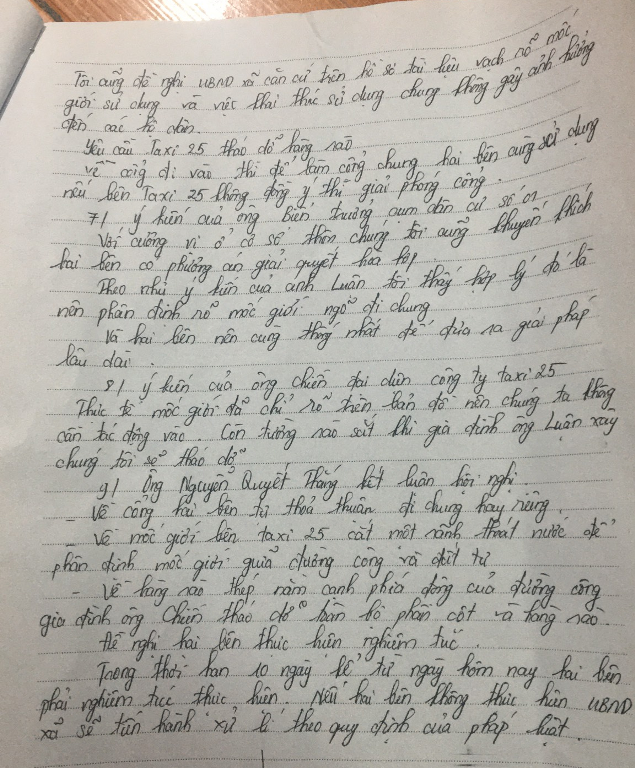 Tôi cũng đề nghị UBND xã căn cứ trên hồ sơ tài liệu vạch rõ mốc
giới sử dụng và việc khai thác sử dụng chung không gây ảnh hưởng
đến các hộ dân.
Yêu cầu Taxi 25 tháo dỡ hàng rào
về cổng đi vào thì để làm cổng chung hai bên cùng sử dụng
nếu bên Taxi 25 không đồng ý thì giải phóng cổng.
7/ ý kiến của ông Biên trưởng cụm dân cư số 01
Với cương vị ở cơ sở thôn chúng tôi cũng khuyến khích
hai bên có phương án giải quyết hòa hợp.
Theo như ý kiến của anh Luân tôi thấy hợp lý đó là
nên phân định rõ mốc giới ngõ đi chung
Và hai bên nên cùng thống nhất để đưa ra giải pháp
lâu dài.
8/ ý kiến của ông chiến đại diện công ty taxi 25
Thực tế mốc giới đã chỉ rõ trên bản đồ nên chúng ta không
cần tác động vào. Còn tường rào sắt khi gia đình ông Luận xây
chúng tôi sẽ tháo dỡ
9/ Ông Nguyễn Quyết Thắng kết luận hội nghị.
- Về cổng hai bên tự thoả thuận đi chung hay riêng.
- Về mốc giới bên taxi 25 cắt một rãnh thoát nước để
phân định mốc giới giữa đường công và đất tư
- Về hàng rào thép nằm cạnh phía đông của đường công
gia đình ông Chiến tháo dỡ toàn bộ phần cột và hàng rào.
Đề nghị hai bên thực hiện nghiêm túc.
Trong thời hạn 10 ngày kể từ ngày hôm nay hai bên
phải nghiêm túc thực hiện. Nếu hai bên không thực hiện UBND
xã sẽ tiến hành xử lí theo quy định của pháp luật.